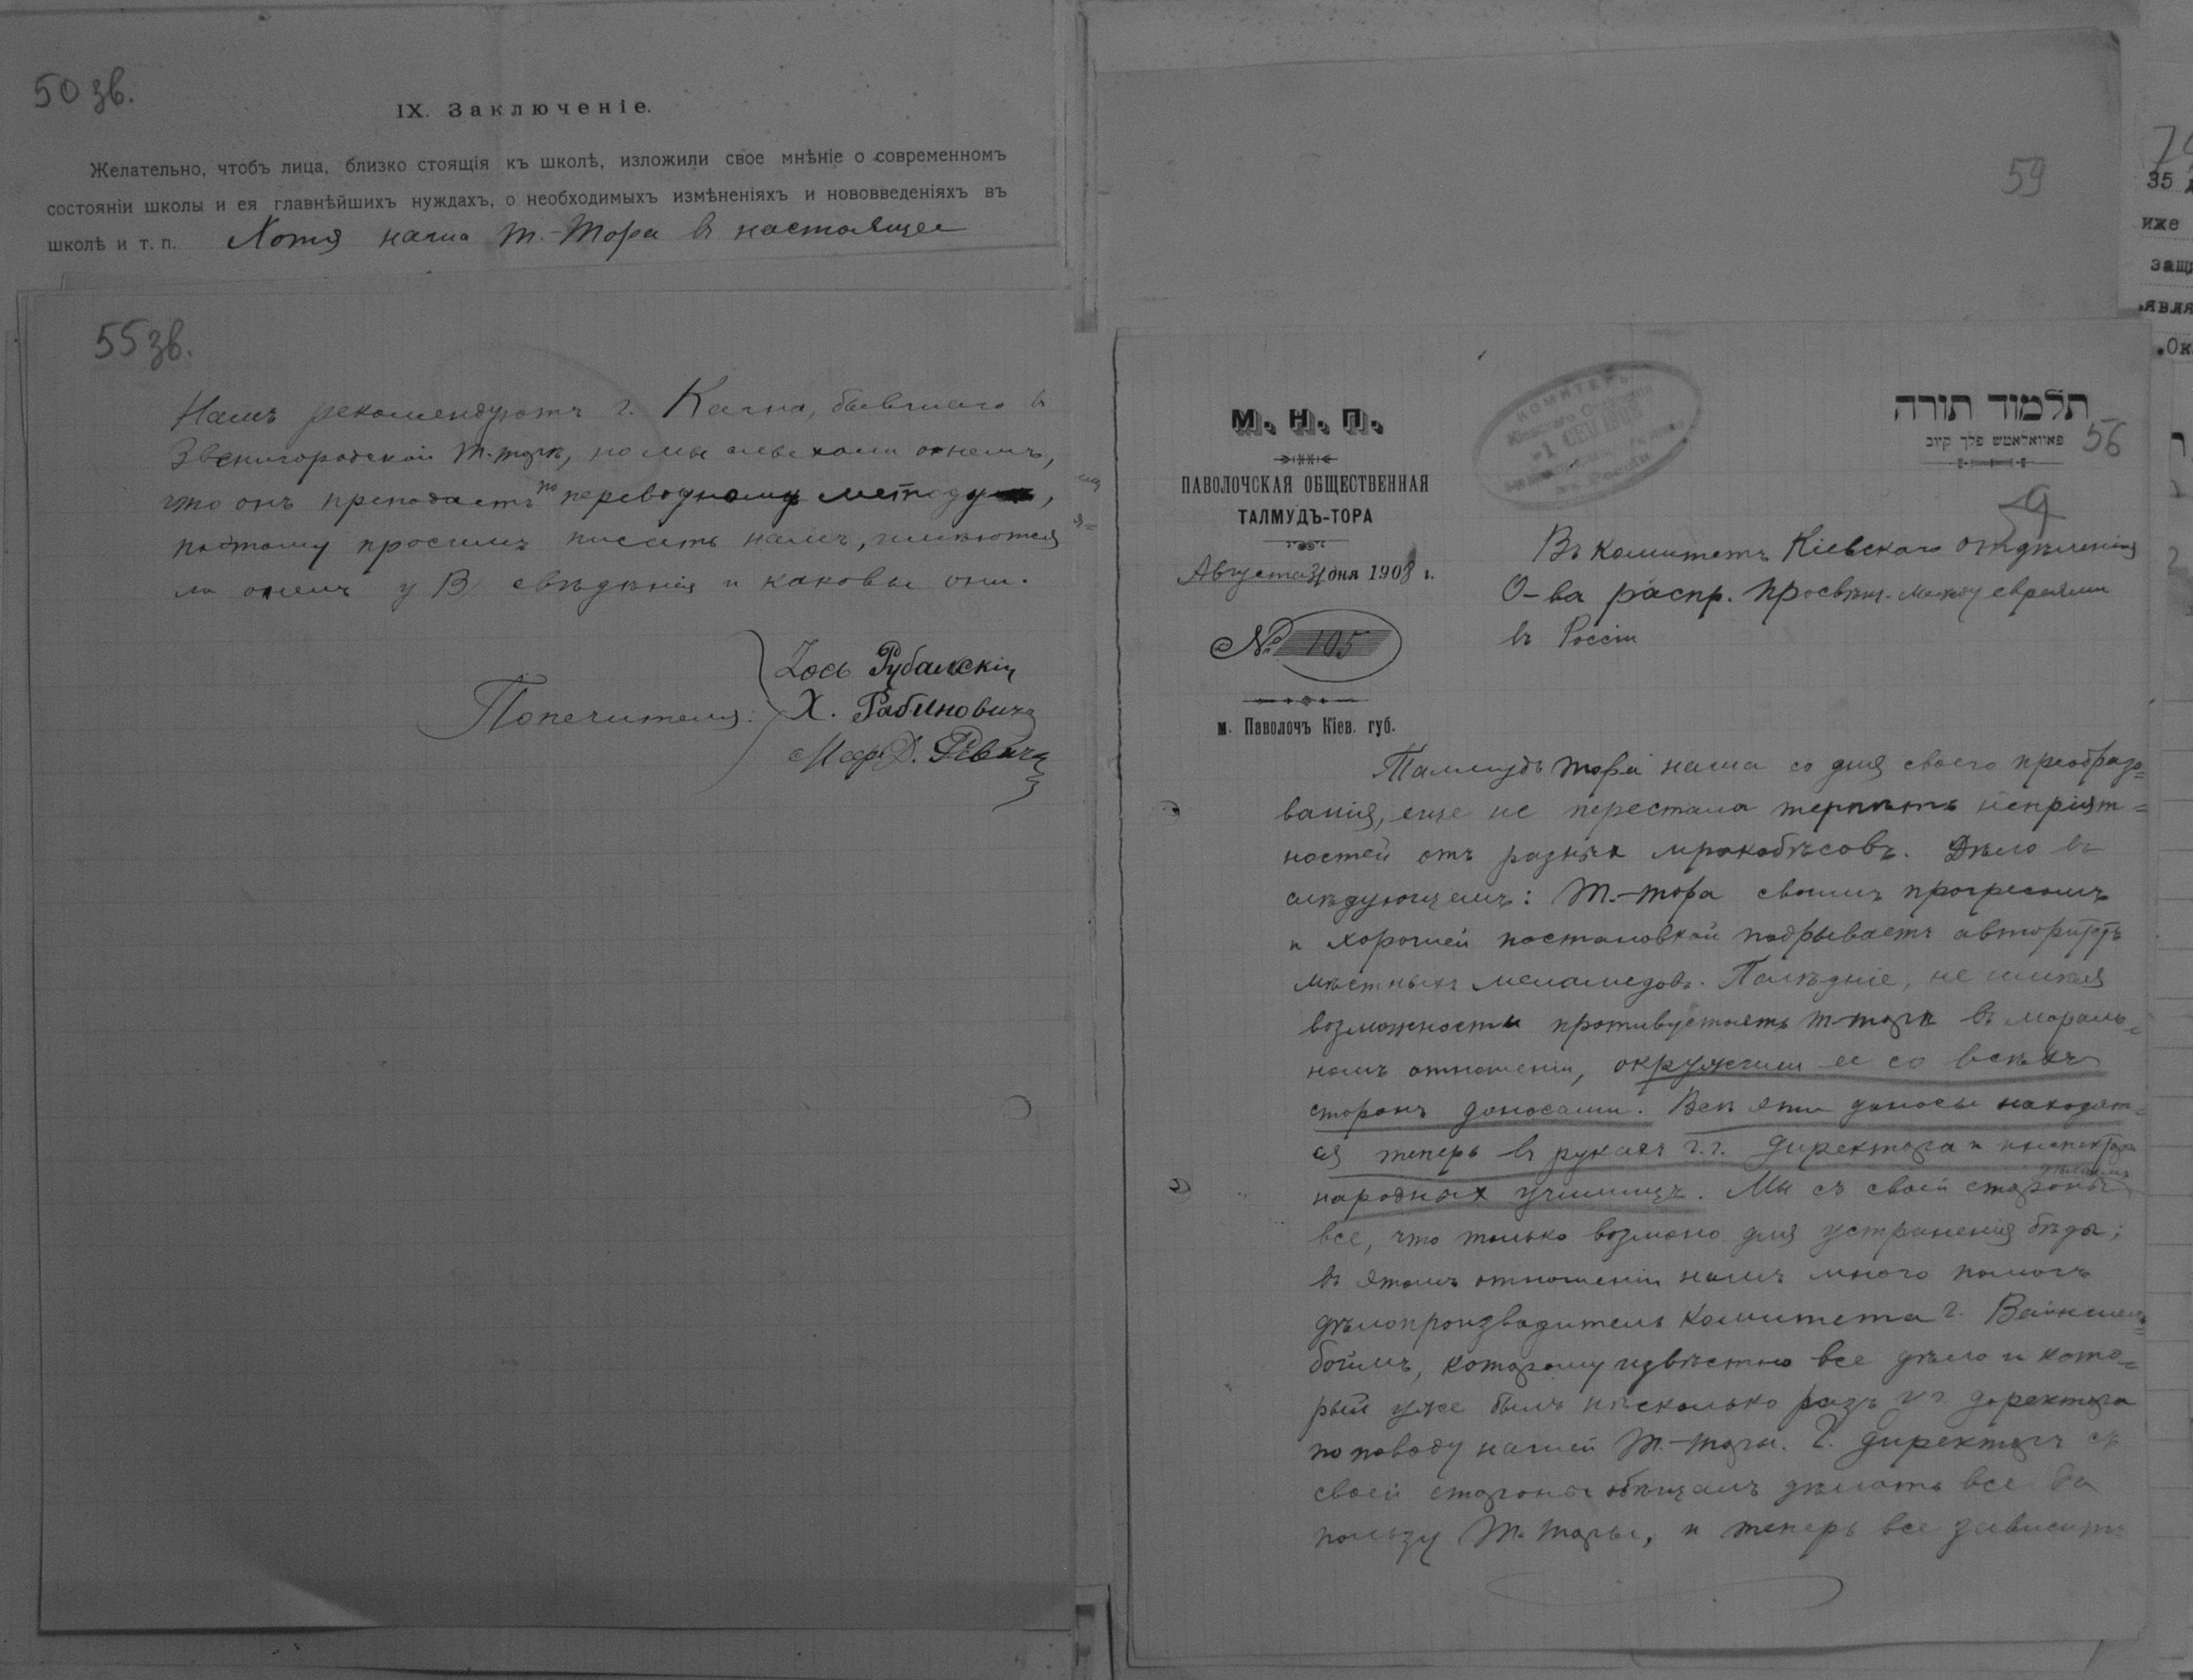 50 зв.
IX. Заключеніе.
Желательно, чтобъ лица, близко стоящія къ школѣ, изложили свое мнѣніе о современномъ
состояніи школы и ея главнѣйшихъ нуждахъ, о необходимыхъ измѣненіяхъ и нововведеніяхъ въ
школѣ и т. п. Хотя наша Т.-Тора въ настоящее
55 зв.
Намъ рекомендуютъ г. Кагна, бывшаго въ
Звенигородской Т.-торѣ, но мы слыхали о немъ,
что онъ преподаетъ по переводному методу,
поэтому просимъ писать намъ, имѣются
ли о немъ у В. свѣдѣнія и каковы они.
Попечители:
Зось Рубальскій
Х. Рабиновичъ
Мор. Д. Рѣвичъ
59
М. Н. П.
ПАВОЛОЧСКАЯ ОБЩЕСТВЕННАЯ
ТАЛМУДЪ-ТОРА
Августа 31 дня 1908 г.
№ 105
м. Паволочъ Кіев. губ.
КОМИТЕТЪ
תלמוד תורה
פאוואלאטש פלך קיוב
56
Въ Комитетъ Кіевскаго отдѣленія
О-ва распр. просвѣщ. между евреями
въ Россіи
Талмудъ тора наша со дня своего преобразо=
ванія, еще не перестала терпѣть непріят=
ностей отъ разныхъ мракобѣсовъ. Дѣло въ
слѣдующемъ: Т.-тора своимъ прогресомъ
и хорошей постановкой подрываетъ авторитетъ
мѣстныхъ меламедовъ. Послѣдніе, не имѣя
возможности противустоять Т-торѣ въ мораль=
номъ отношеніи, окружили ее со всѣхъ
сторонъ доносами. Всѣ эти доносы находят=
ся теперь въ рукахъ г.г. директора и инспектора
народныхъ училищъ. Мы съ своей стороны дѣлаемъ
все, что только возможно для устраненія бѣды;
въ этомъ отношеніи намъ много помогъ
дѣлопроизводитель Комитета г. Вайншель=
боймъ, которому извѣстно все дѣло и кото=
рый уже былъ нѣсколько разъ у г. директора
по поводу нашей Т.-торы. Г. директоръ съ
своей стороны обѣщалъ дѣлать все въ
пользу Т. торы, и теперь все зависитъ
35
иже
защ
явля
.Ок